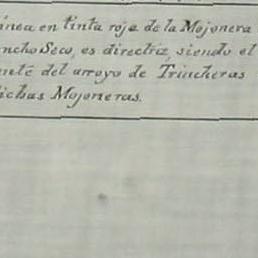 ínea en tinta roja de la Mojonera
ncho Seco, es directriz siendo el
ente del arroyo de Trincheras
ichas Mojoneras.